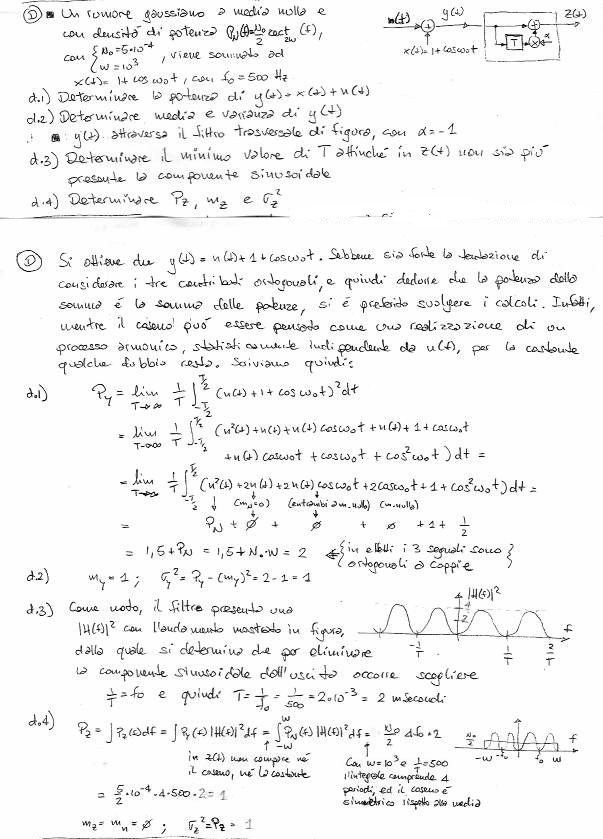 D Un rumore gaussiano a media nulla e
con densità di potenza P_N(f)=N₀/2 rect_2W(f),
con { N₀=5·10⁻⁴
W=10³ , viene sommato ad
x(t)=1+cosω₀t, con f₀=500 Hz
n(t) y(t) z(t)
x(t)=1+cosω₀t T α
d.1) Determinare la potenza di y(t)=x(t)+n(t)
d.2) Determinare media e varianza di y(t)
y(t) attraversa il filtro trasversale di figura, con α=-1
d.3) Determinare il minimo valore di T affinché in z(t) non sia più
presente la componente sinusoidale
d.4) Determinare P_z, m_z e σ_z²
D Si ottiene che y(t)=n(t)+1+cosω₀t. Sebbene sia forte la tentazione di
considerare i tre contributi ortogonali, e quindi dedurre che la potenza della
somma è la somma delle potenze, si è preferito svolgere i calcoli. Infatti,
mentre il coseno può essere pensato come una realizzazione di un
processo armonico, statisticamente indipendente da n(t), per la costante
qualche dubbio resta. Scriviamo quindi:
d.1) P_y = lim T→∞ 1/T ∫_{-T/2}^{T/2} (n(t)+1+cosω₀t)² dt
= lim T→∞ 1/T ∫_{-T/2}^{T/2} (n²(t)+n(t)+n(t)cosω₀t+n(t)+1+cosω₀t
+n(t)cosω₀t+cosω₀t+cos²ω₀t) dt =
= lim T→∞ 1/T ∫_{-T/2}^{T/2} (n²(t)+2n(t)+2n(t)cosω₀t+2cosω₀t+1+cos²ω₀t) dt =
↓ (m_N=0) (entrambi a m. nulla) (m. nulla)
= P_N + ∅ + ∅ + ∅ + 1 + 1/2
= 1,5+P_N = 1,5+N₀·W = 2 ⇐ { in effetti i 3 segnali sono
ortogonali a coppie }
d.2) m_y=1 ; σ_y²=P_y-(m_y)²=2-1=1
d.3) Come noto, il filtro presenta una
|H(f)|² con l'andamento mostrato in figura,
dalla quale si determina che per eliminare
la componente sinusoidale dall'uscita occorre scegliere
1/T=f₀ e quindi T=1/f₀=1/500=2·10⁻³=2 msecondi
|H(f)|² 4 2 -1/T 1/T 2/T f
d.4) P_z=∫P_z(f)df=∫P_y(f)|H(f)|²df=∫_{-W}^{W} P_N(f)|H(f)|²df= N₀/2 4f₀·2
in z(t) non compare né
il coseno, né la costante
Con W=10³ e 1/T=500
l'integrale comprende 4
periodi, ed il coseno è
simmetrico rispetto alla media
N₀/2 -W -f₀ f₀ W f
= 5/2·10⁻⁴·4·500·2=1
m_z=m_n=∅ ; σ_z²=P_z=1